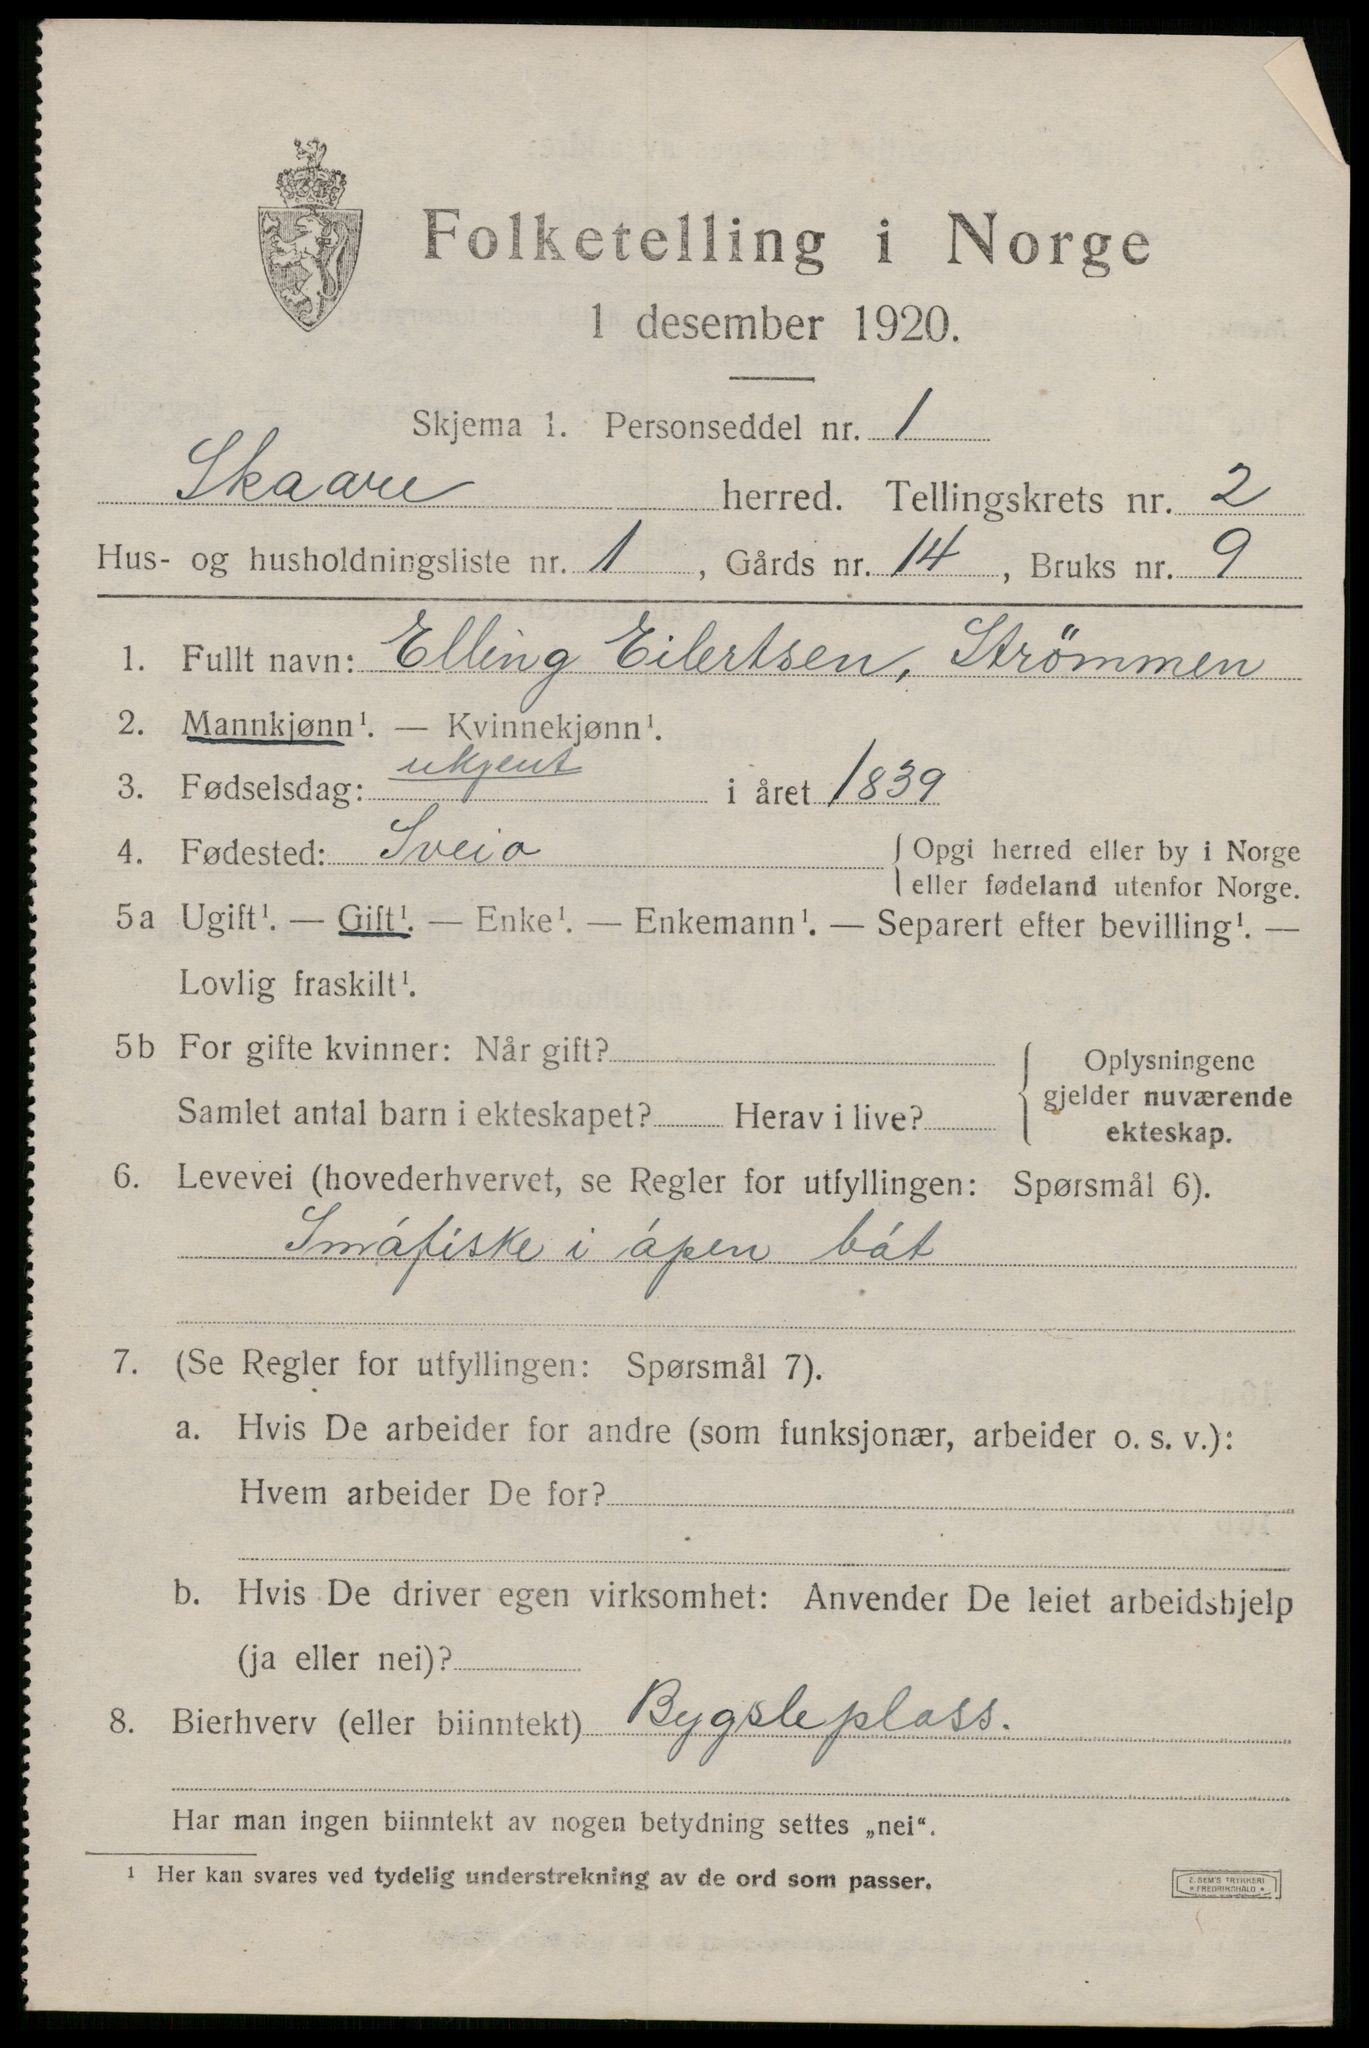 Folketelling i Norge
1 desember 1920.
Skjema 1. Personseddel nr. 1
Skaare herred. Tellingskrets nr. 2
Hus- og husholdningsliste nr. 1, Gårds nr. 14, Bruks nr. 9
1. Fullt navn: Elling Eilertsen, Strömmen
2. Mannkjønn¹. — Kvinnekjønn¹.
3. Fødselsdag: ukjent i året 1839
4. Fødested: Sveio { Opgi herred eller by i Norge
eller fødeland utenfor Norge.
5a Ugift¹. — Gift¹. — Enke¹. — Enkemann¹. — Separert efter bevilling¹. —
Lovlig fraskilt¹.
5b For gifte kvinner: Når gift? { Oplysningene
gjelder nuværende
Samlet antal barn i ekteskapet? Herav i live?
ekteskap.
6. Levevei (hovederhvervet, se Regler for utfyllingen: Spørsmål 6).
Småfiske i åpen båt
7. (Se Regler for utfyllingen: Spørsmål 7).
a. Hvis De arbeider for andre (som funksjonær, arbeider o. s. v.):
Hvem arbeider De for?
b. Hvis De driver egen virksomhet: Anvender De leiet arbeidshjelp
(ja eller nei)?
8. Bierhverv (eller biinntekt) Bygsleplass.
Har man ingen biinntekt av nogen betydning settes „nei“.
¹ Her kan svares ved tydelig understrekning av de ord som passer.
E. SEM'S TRYKKERI
* FREDRIKSHALD *